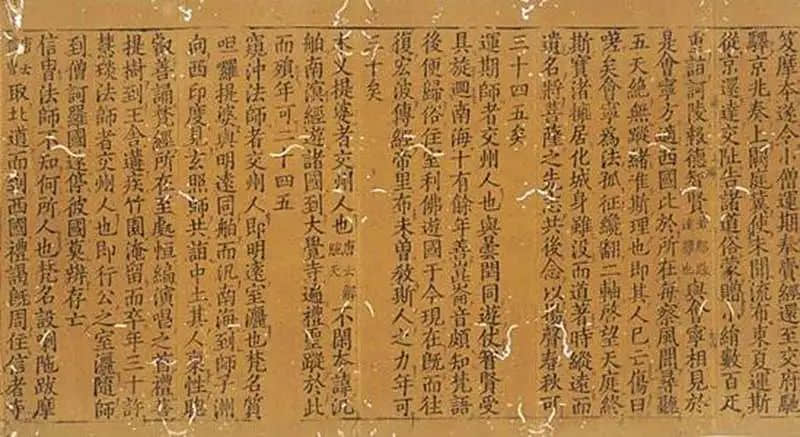 笈摩本遂令小僧運期奉賫經還至交府馳
驛京兆奏上闕庭冀使未聞流布東夏運斯
從京還達交阯告諸道俗蒙贈小絹數百疋
重詣訶陵報德智賢若那跋達羅也與會寧相見於
是會寧方適西國比於所在每察風聞尋聽
五天絕無蹤緒准斯理也即其人已亡傷曰
嗟矣會寧為法孤征纔翻二軸啓望天庭終
斯寶渚權居化城身雖沒而道著時縱遠而
遺名將菩薩之先志共後念以揚聲春秋可
三十四五矣
運期師者交州人也與曇閏同遊仗智賢受
具旋迴南海十有餘年善崑崙音頗知梵語
後便歸俗住至利佛遊國于今現在既而往
復宏波傳經帝里布未曾教斯人之力年可
三十矣
木叉提婆者交州人也唐云解脫天不閑本諱汎
舶南溟經遊諸國到大覺寺遍禮聖蹤於此
而殞年可二十四五
窺沖法師者交州人即明遠室灑也梵名質
呾囉提婆與明遠同舶而汎南海到師子洲
向西印度見玄照師共詣中土其人稟性聰
叡善誦梵經所在至處恒編演唱之首禮菩
提樹到王舍遘疾竹園淹留而卒年三十許
慧琰法師者交州人也即行公之室灑隨師
到僧訶羅國遂停彼國莫辨存亡
信冑法師不知何所人也梵名設喇陁跋摩
唐云信冑取北道而到西國禮謁既周住信者寺